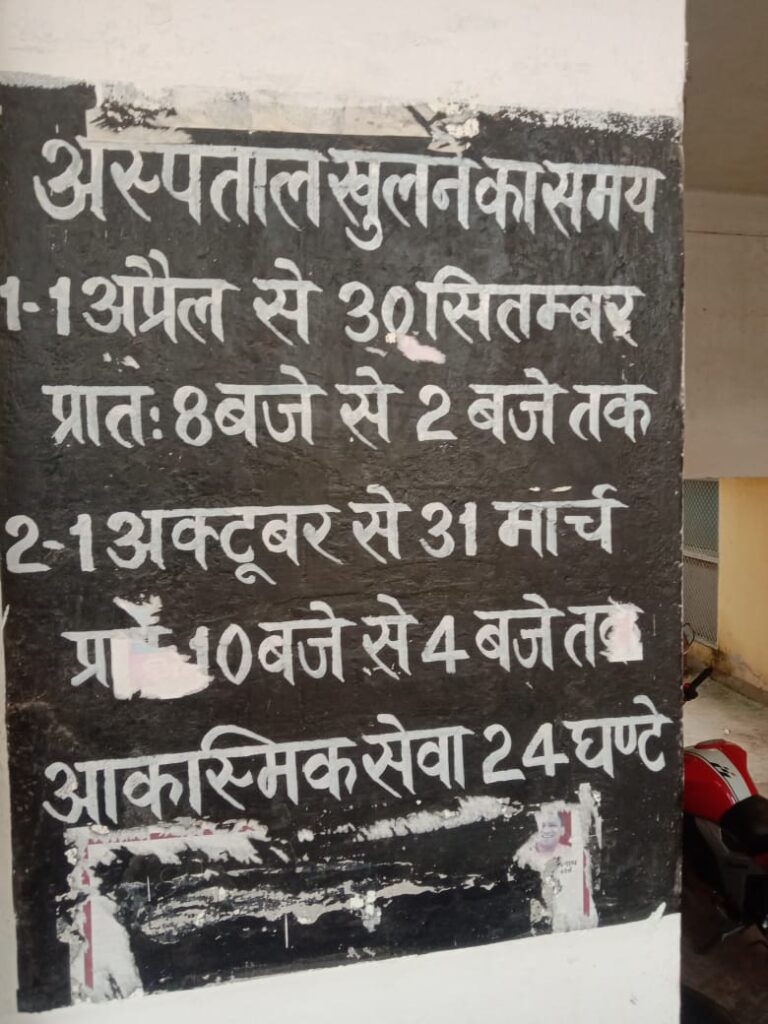 अस्पताल खुलने का समय
1-1 अप्रैल से 30 सितम्बर
प्रातः 8 बजे से 2 बजे तक
2-1 अक्टूबर से 31 मार्च
10 बजे से 4 बजे तक
आकस्मिक सेवा 24 घण्टे